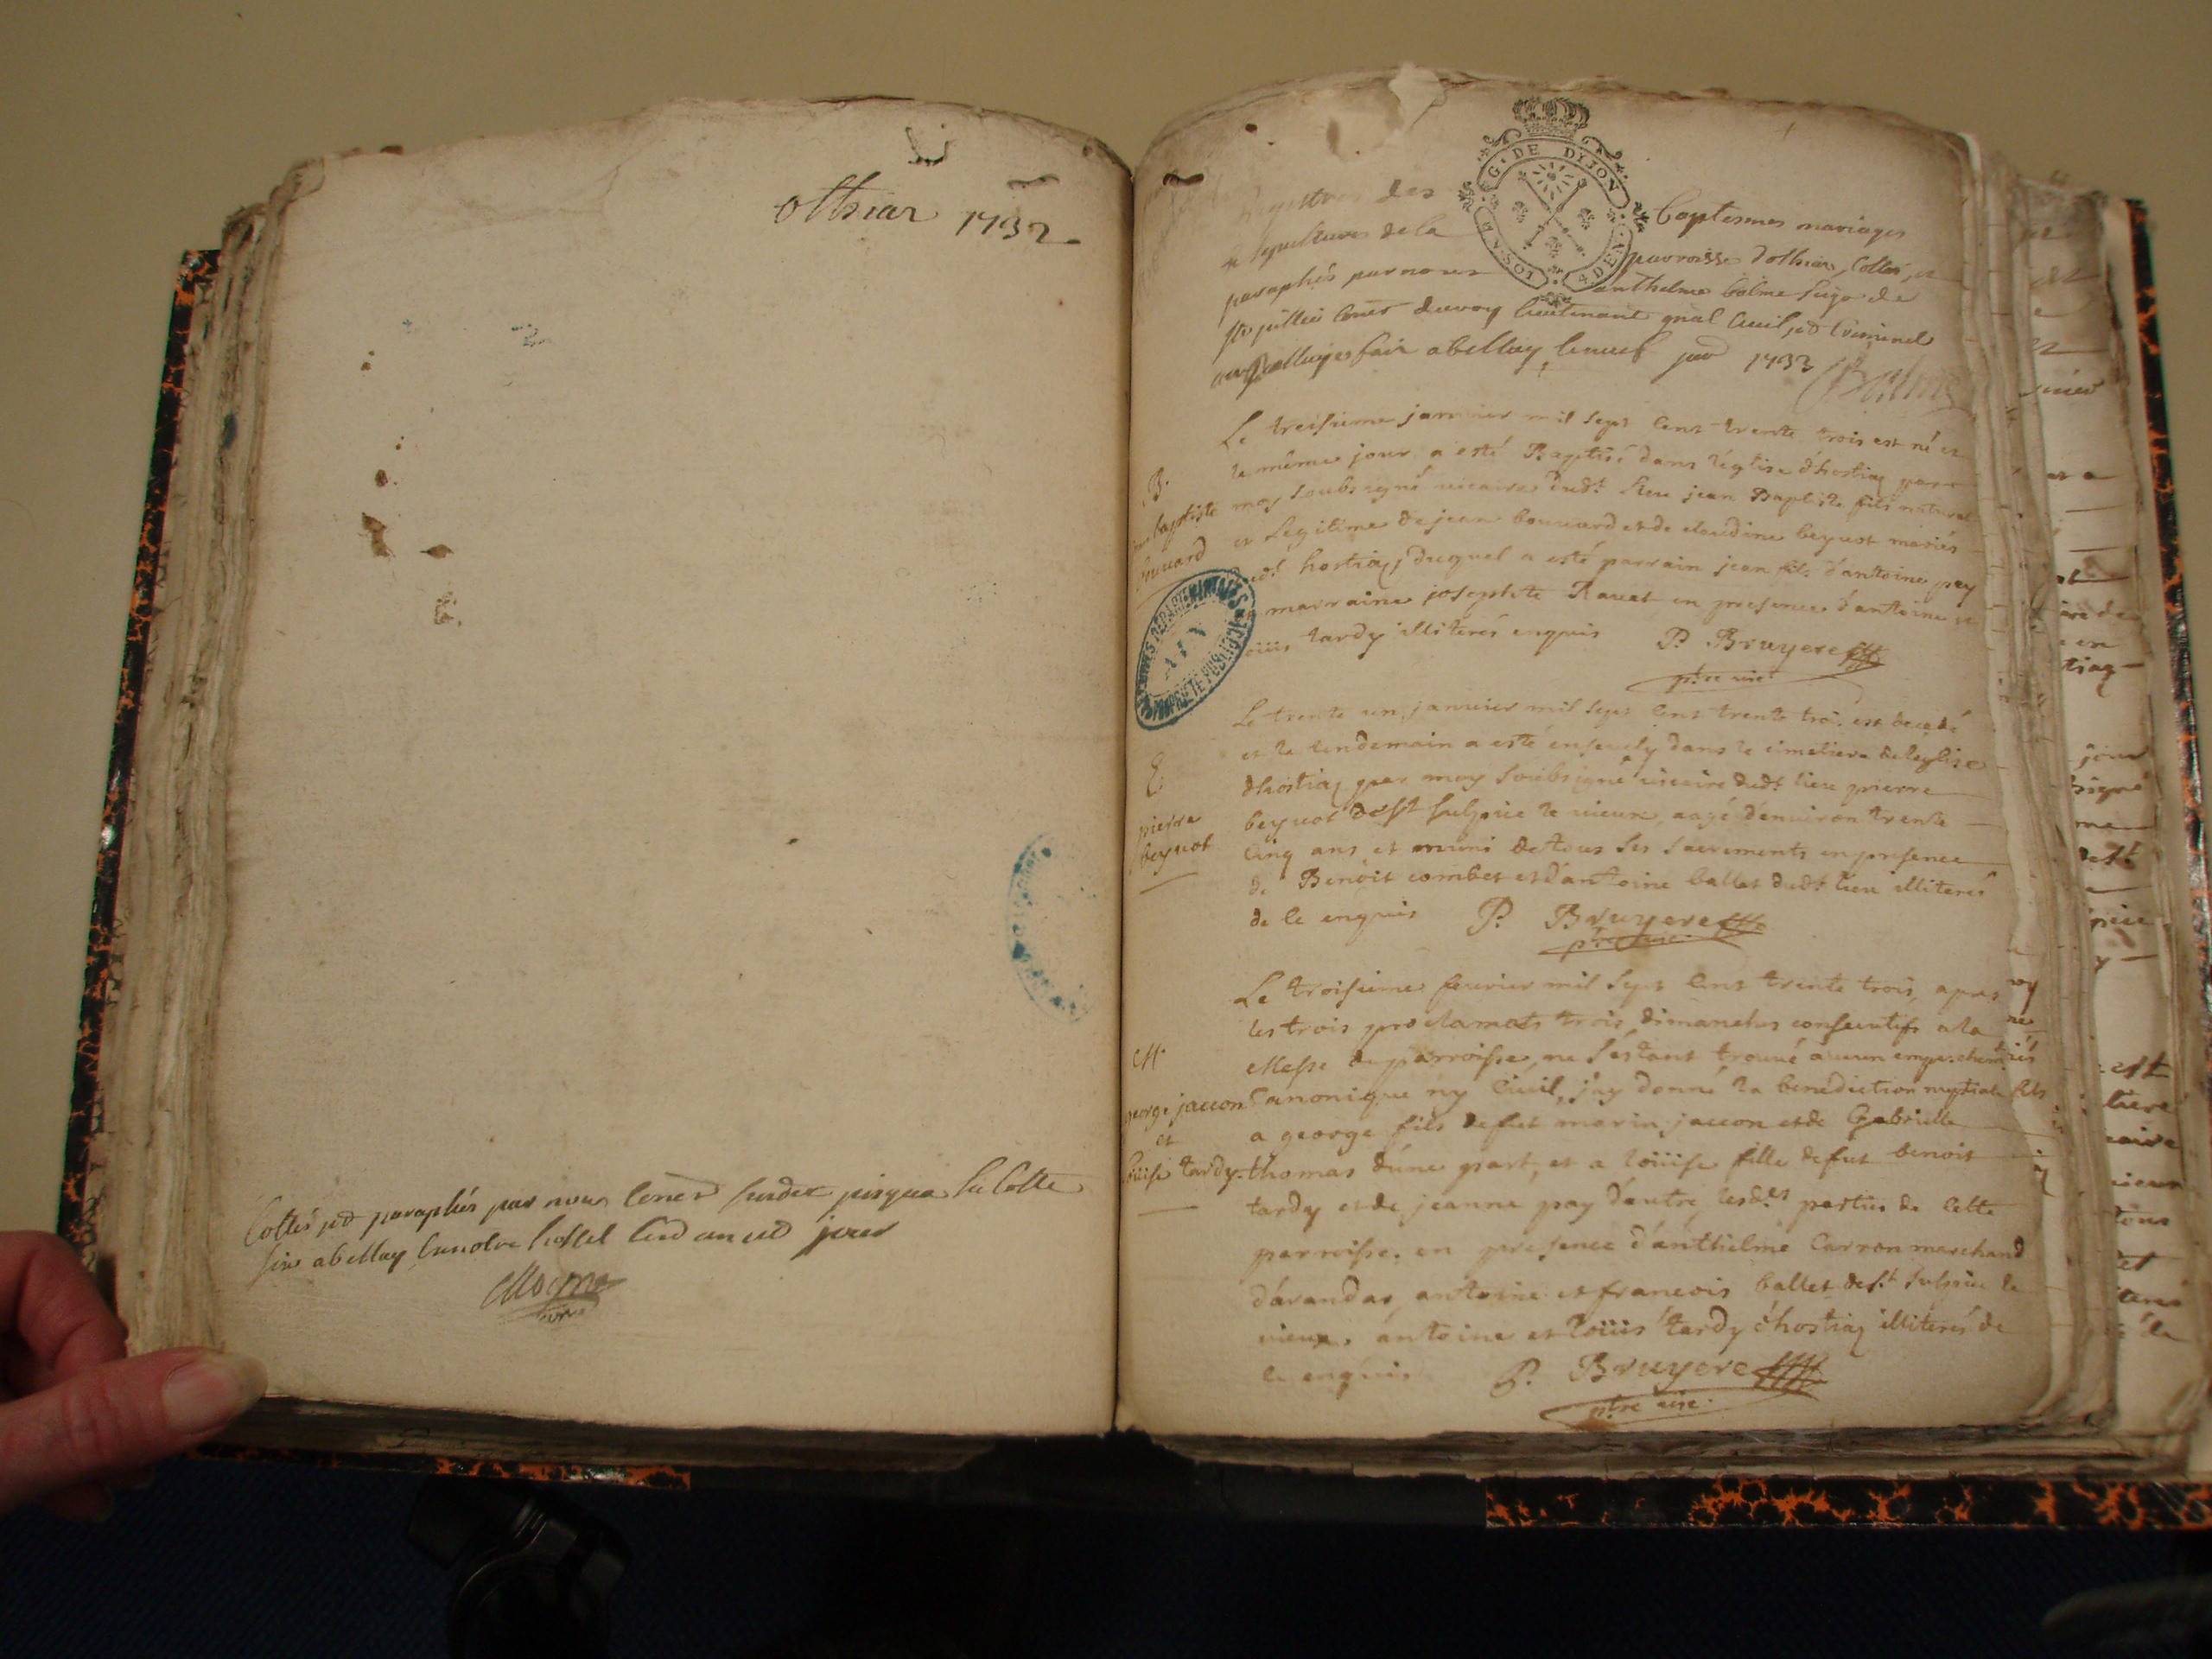 othiar 1732
Cottés et paraphés par nous
sire abellay
G. DE DYION
Registres des Baptesmes mariages
et sepultures de la parroisse dothiar, Cottés, et
paraphés par nous anthelme balme
lieutenant gnal Civil, et Criminel
abellay le neuf janv 1733
Balme
Le treisieme janvier mil sept cent trente trois est né et
le même jour a esté Baptisé dans l'église d'hostiaz par
moy soubsigné vicaire dudt lieu jean Baptiste fils naturel
et Legitime de jean bouvard et de claudine beyuot mariés
dudt hostiaz, duquel a esté parrain jean fils d'antoine pay
marraine josephte Ravet en presence d'antoine et
loüis tardy illiterés enquis P. Bruyere
ptre vic.
B.
jean baptiste
bouuard
ARCHIVES DEPARTEMENTALES
AIN
PROPRIETE PUBLIQUE
Le trente un janvier mil sept cent trente trois est decedé
et le lendemain a esté ensevely dans le cimetiere de leglise
dhostiaz par moy soubsigné viccaire dudt lieu pierre
beyuot de st sulpice le vieux, aagé d'environ trente
Cinq ans et muni de tous ses sacrements en presence
de Benoit combet et d'antoine ballet dudt lieu illiterés
de ce enquis P. Bruyere
ptre vic.
E
pierre
beyuot
Le troisieme fevrier mil sept cent trente trois, apres
les trois proclamats trois dimanches consecutifs a la
Messe de parroisse, ne s'estant trouvé aucun empechemt
Canonique ny Civil, j'ay donné la benediction nuptiale
a george fils de fut marin jaccon et de Gabrielle
thomas d'une part, et a loüise fille de fut benoit
tardy et de jeanne pay d'autre lesdts parties de cette
parroisse. en presence d'anthelme Carron marchand
d'arandas, antoine et francois ballet de st sulpice le
vieux, antoine et loüis tardy d'hostiaz illiterés de
ce enquis P. Bruyere
ptre vic.
M.
george jaccon
et
loüise tardy.